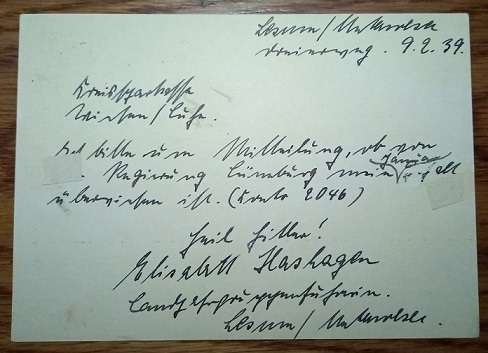 Lesum/Unterweser
9.2.39.
Kreissparkasse
Winsen/Luhe.
Ich bitte um Mitteilung, ob von
Regierung Lüneburg mein Januar
überwiesen ist. (Konto 2046)
Heil Hitler!
Elisabeth Hashagen
Landjahrgruppenführerin.
Lesum/Unterweser.